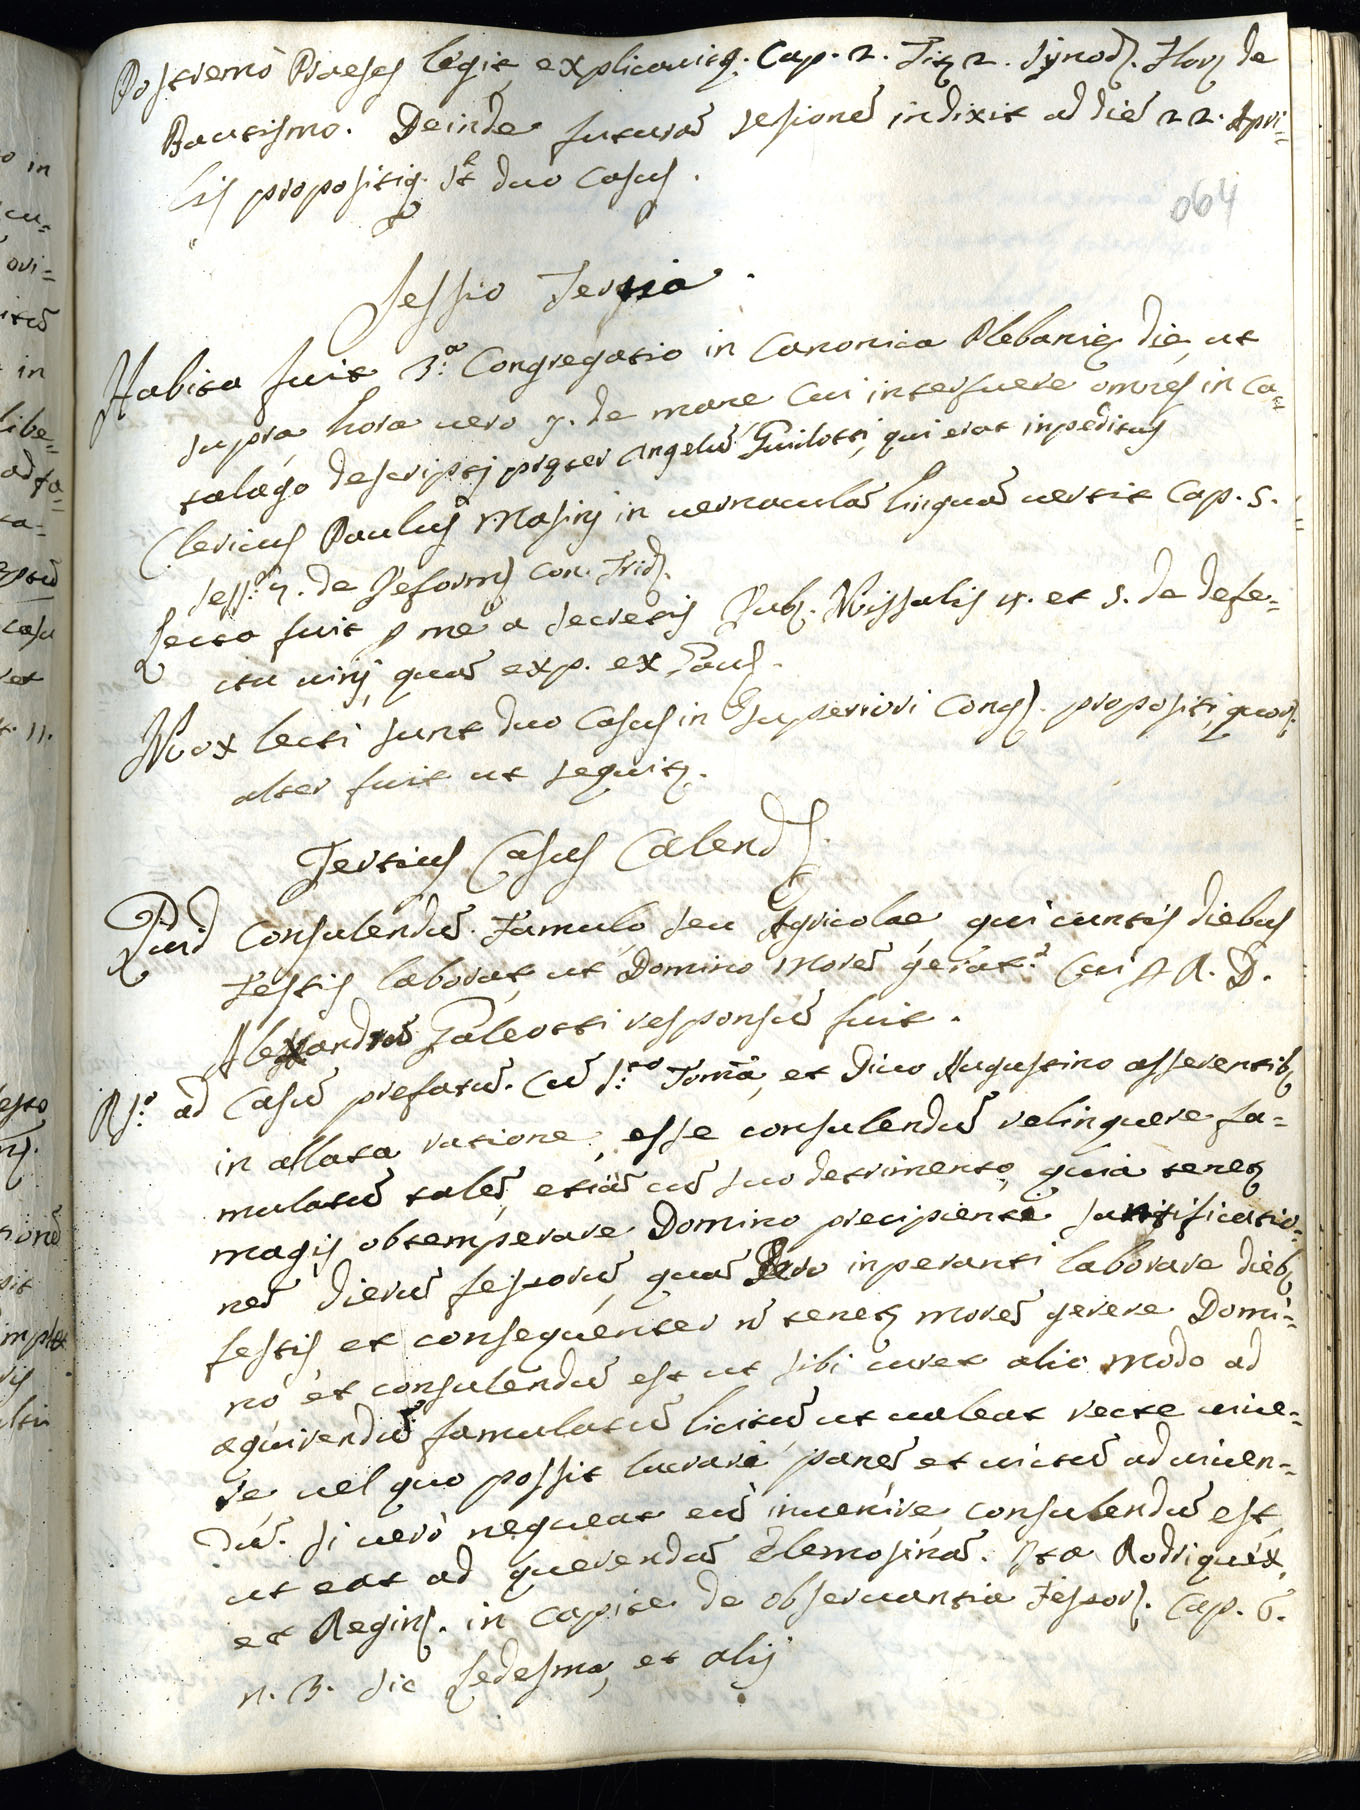 Postremò Praeses legit, explicavitq. Cap. 2. Tit. 2. Synod. Flor. de
Bautismo. Deinde futurã sesionẽ indixit ad diẽ 22. Apri=
lis propositis. duo Casus.
064
Sessio Tertia.
Habita fuit 3.ª Congregatio in Canonica Plebanię die, ut
supra, hora uero 7. de mane Cui interfuere omnes in Ca=
talago descripti pręter Angelũ Guidotti, qui erat inpeditus
Clericus Paulus Masinj in uernaculã linguã uertit Cap. 5.
Sess. 7. de Reform. Con. Trid.
Lecta fuit p me a secretis Rub. Missalis 4. et 5. de defe=
ctu uinj, quã exp. ex Gau.
Mox lecti sunt duo Casus in Superiori Cong. propositi, quor.
alter fuit ut sequit.
Tertius Casus Calend.
Quid Consulendũ Famulo seu Agricolae, qui cuntis diebus
Festis laborat, ut Domino Morẽ gerat? Cui p R. D.
Alexandrũ Galeotti responsũ fuit.
R.º ad Casũ prefatũ. Cũ S.to Toma, et Diuo Augustino asserentib.
in allata ratione, esse consulendũ relinquere fa=
mulatũ talẽ, etiã cũ suo detrimento, quia tenet.
magis obtemperare Domino precipiente santificatio=
nẽ dierũ festorũ, quã Dero inperanti laborare dieb.
festis, et consequenter ñ tenet. morẽ gerere Domi=
no et consulendũ est ut sibi curet alio modo ad
aquirendũ famulatũ licitũ ut ualeat recte uiue=
re uel quo possit lucrari panẽ et uictũ ad uiuen=
dũ. Si uerò nequeat eũ inuenire, consulendũ est,
ut eat ad querendã elemosinã. Ita Rodriquex,
et Regin. in capite de obseruantia Festor. Cap. 6.
n. 3. sic Ledesma, et alij